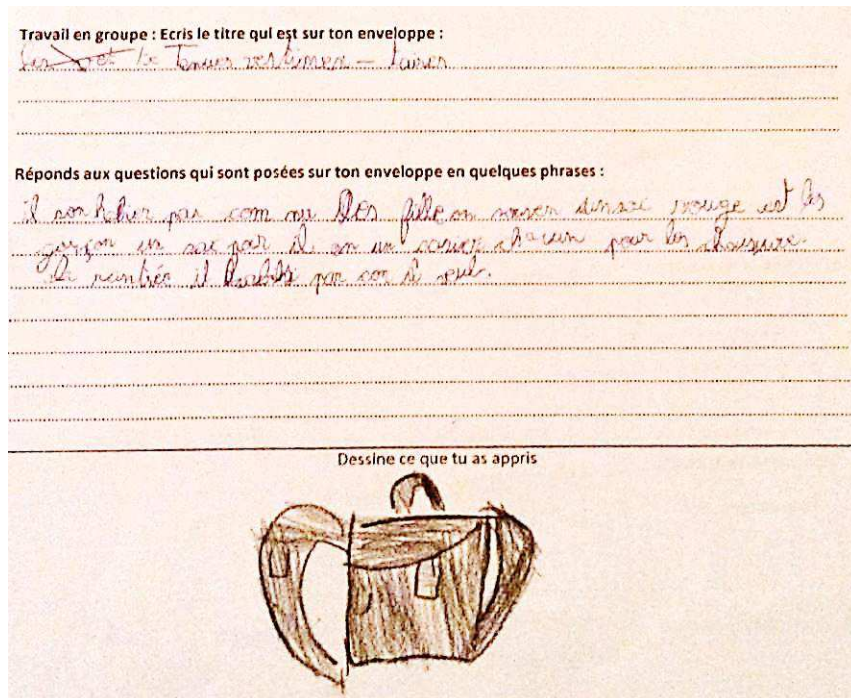 Travail en groupe : Ecris le titre qui est sur ton enveloppe :
Tenues vestimen - taires
Réponds aux questions qui sont posées sur ton enveloppe en quelques phrases :
il pas com nu Les fille on un sac rouge est les
garçon un sac noir il on un casier chacun pour les chaussure.
la rentrée il par cor il seul.
Dessine ce que tu as appris